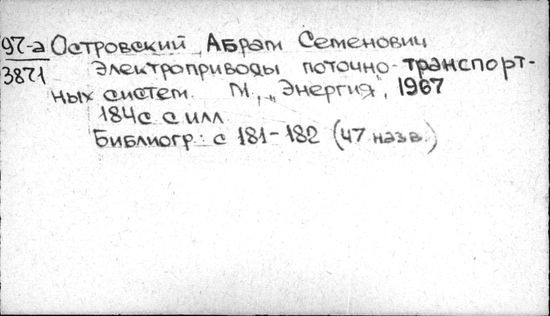 97-а Островский, Абрам Семенович
3871 Электроприводы поточно-транспорт-
ных систем. М., „Энергия", 1967
184с с илл.
Библиогр: с 181-182 (47 назв.)